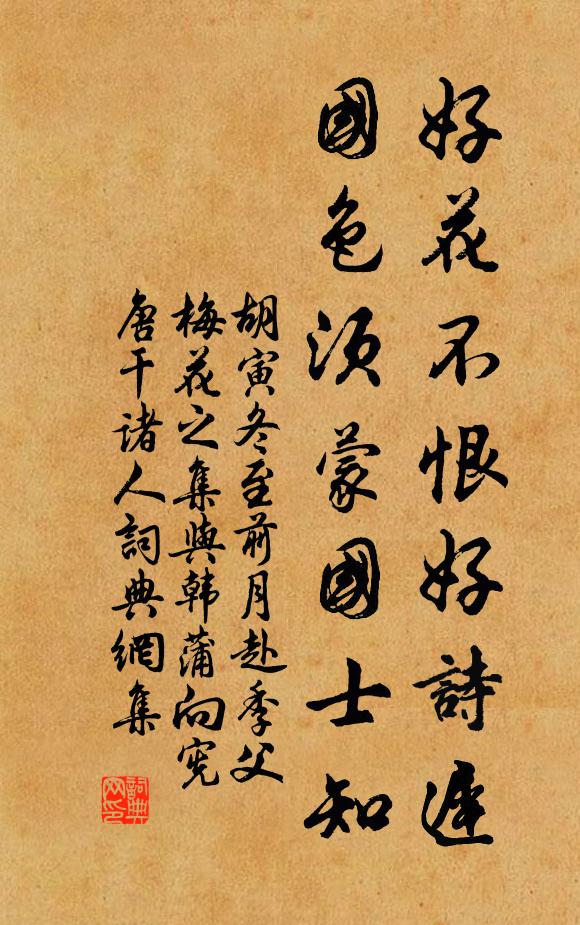 好花不恨好詩遲
國色須蒙國士知
胡寅冬至前月赴季父
梅花之集與韩蒲向憲
唐干诸人詞典網集
詞典网印